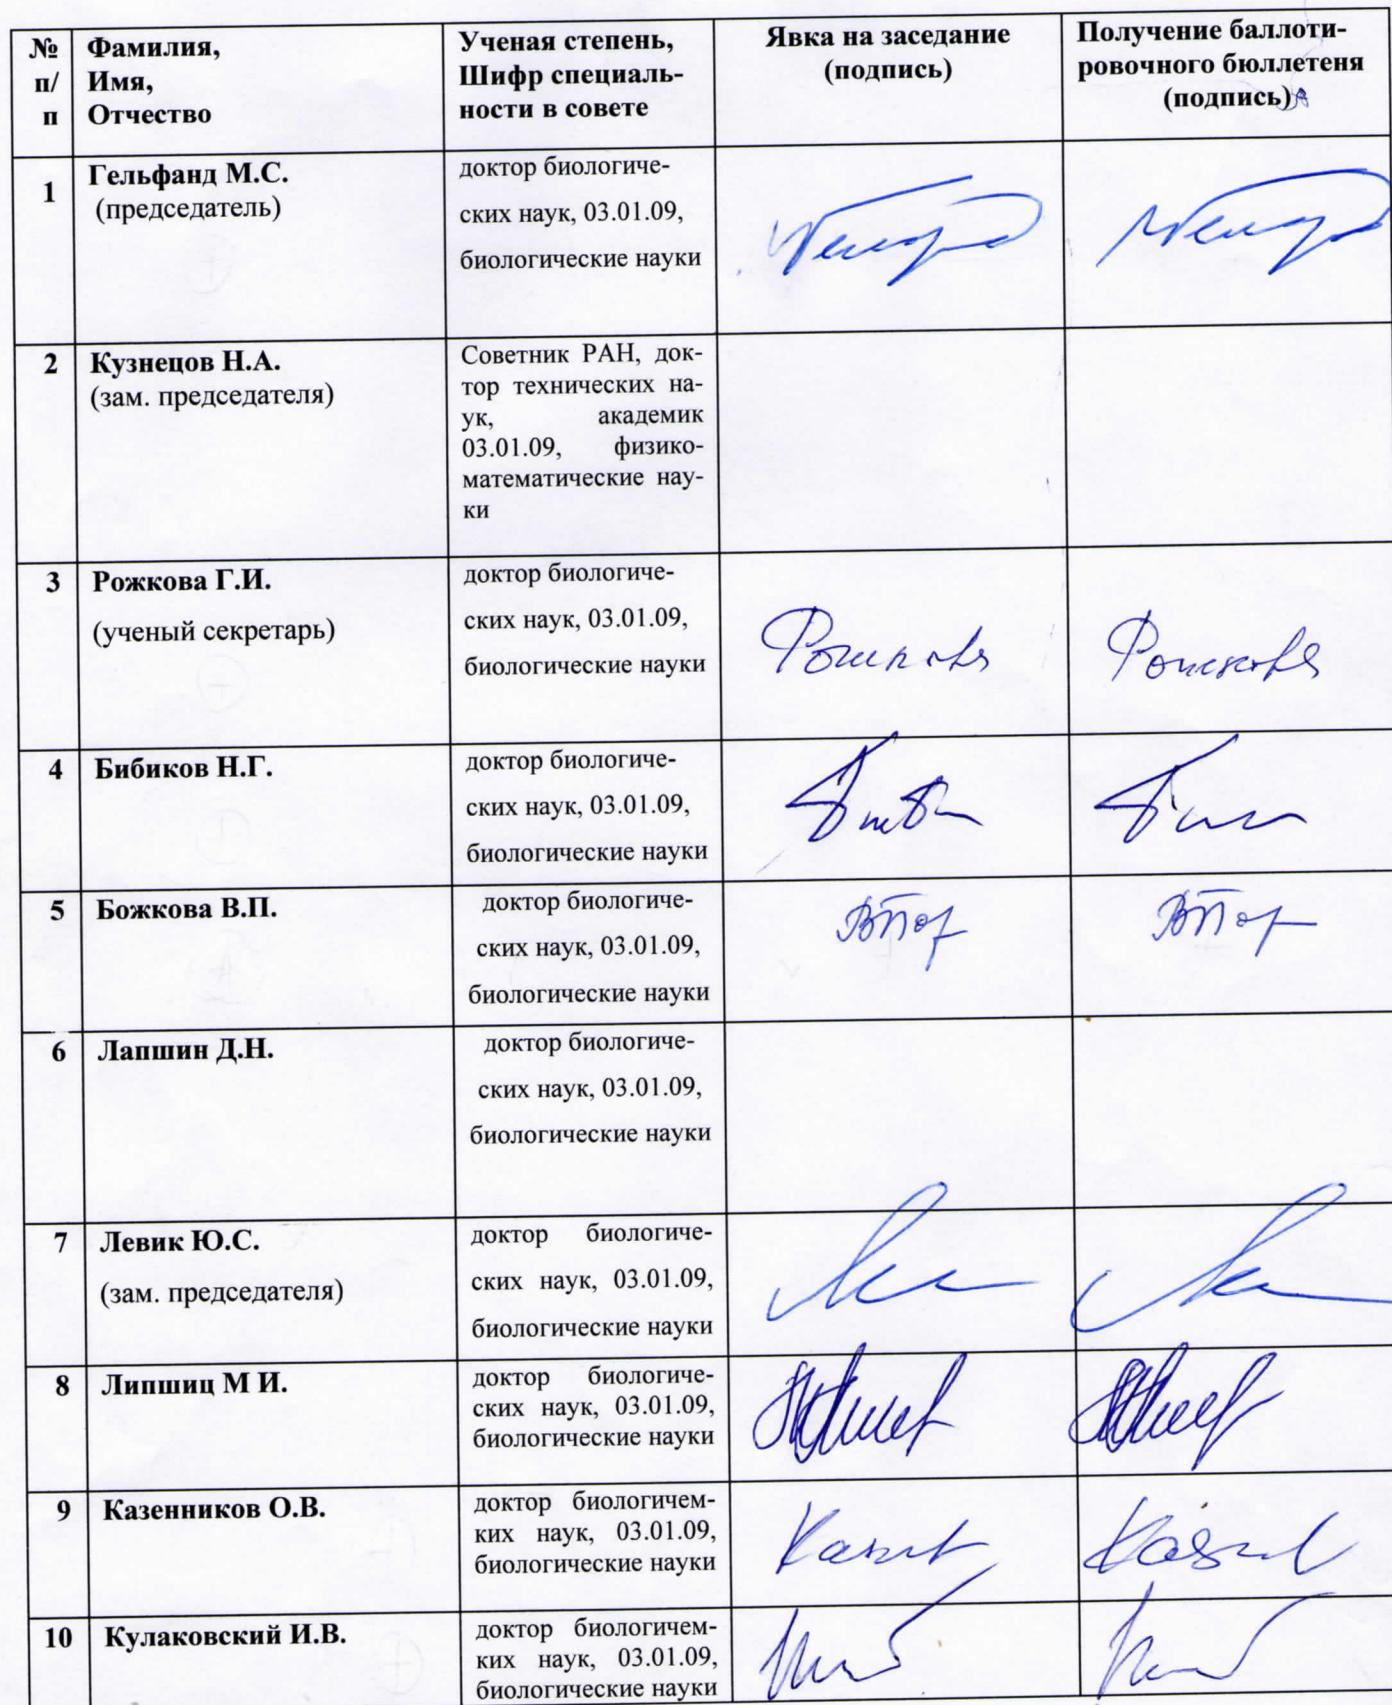 № п/п
Фамилия,
Имя,
Отчество
Ученая степень,
Шифр специаль-
ности в совете
Явка на заседание
(подпись)
Получение баллоти-
ровочного бюллетеня
(подпись)
1
Гельфанд М.С.
(председатель)
доктор биологиче-
ских наук, 03.01.09,
биологические науки
2
Кузнецов Н.А.
(зам. председателя)
Советник РАН, док-
тор технических на-
ук, академик
03.01.09, физико-
математические нау-
ки
3
Рожкова Г.И.
(ученый секретарь)
доктор биологиче-
ских наук, 03.01.09,
биологические науки
4
Бибиков Н.Г.
доктор биологиче-
ских наук, 03.01.09,
биологические науки
5
Божкова В.П.
доктор биологиче-
ских наук, 03.01.09,
биологические науки
6
Лапшин Д.Н.
доктор биологиче-
ских наук, 03.01.09,
биологические науки
7
Левик Ю.С.
(зам. председателя)
доктор биологиче-
ских наук, 03.01.09,
биологические науки
8
Липшиц М И.
доктор биологиче-
ских наук, 03.01.09,
биологические науки
9
Казенников О.В.
доктор биологичем-
ких наук, 03.01.09,
биологические науки
10
Кулаковский И.В.
доктор биологичем-
ких наук, 03.01.09,
биологические науки